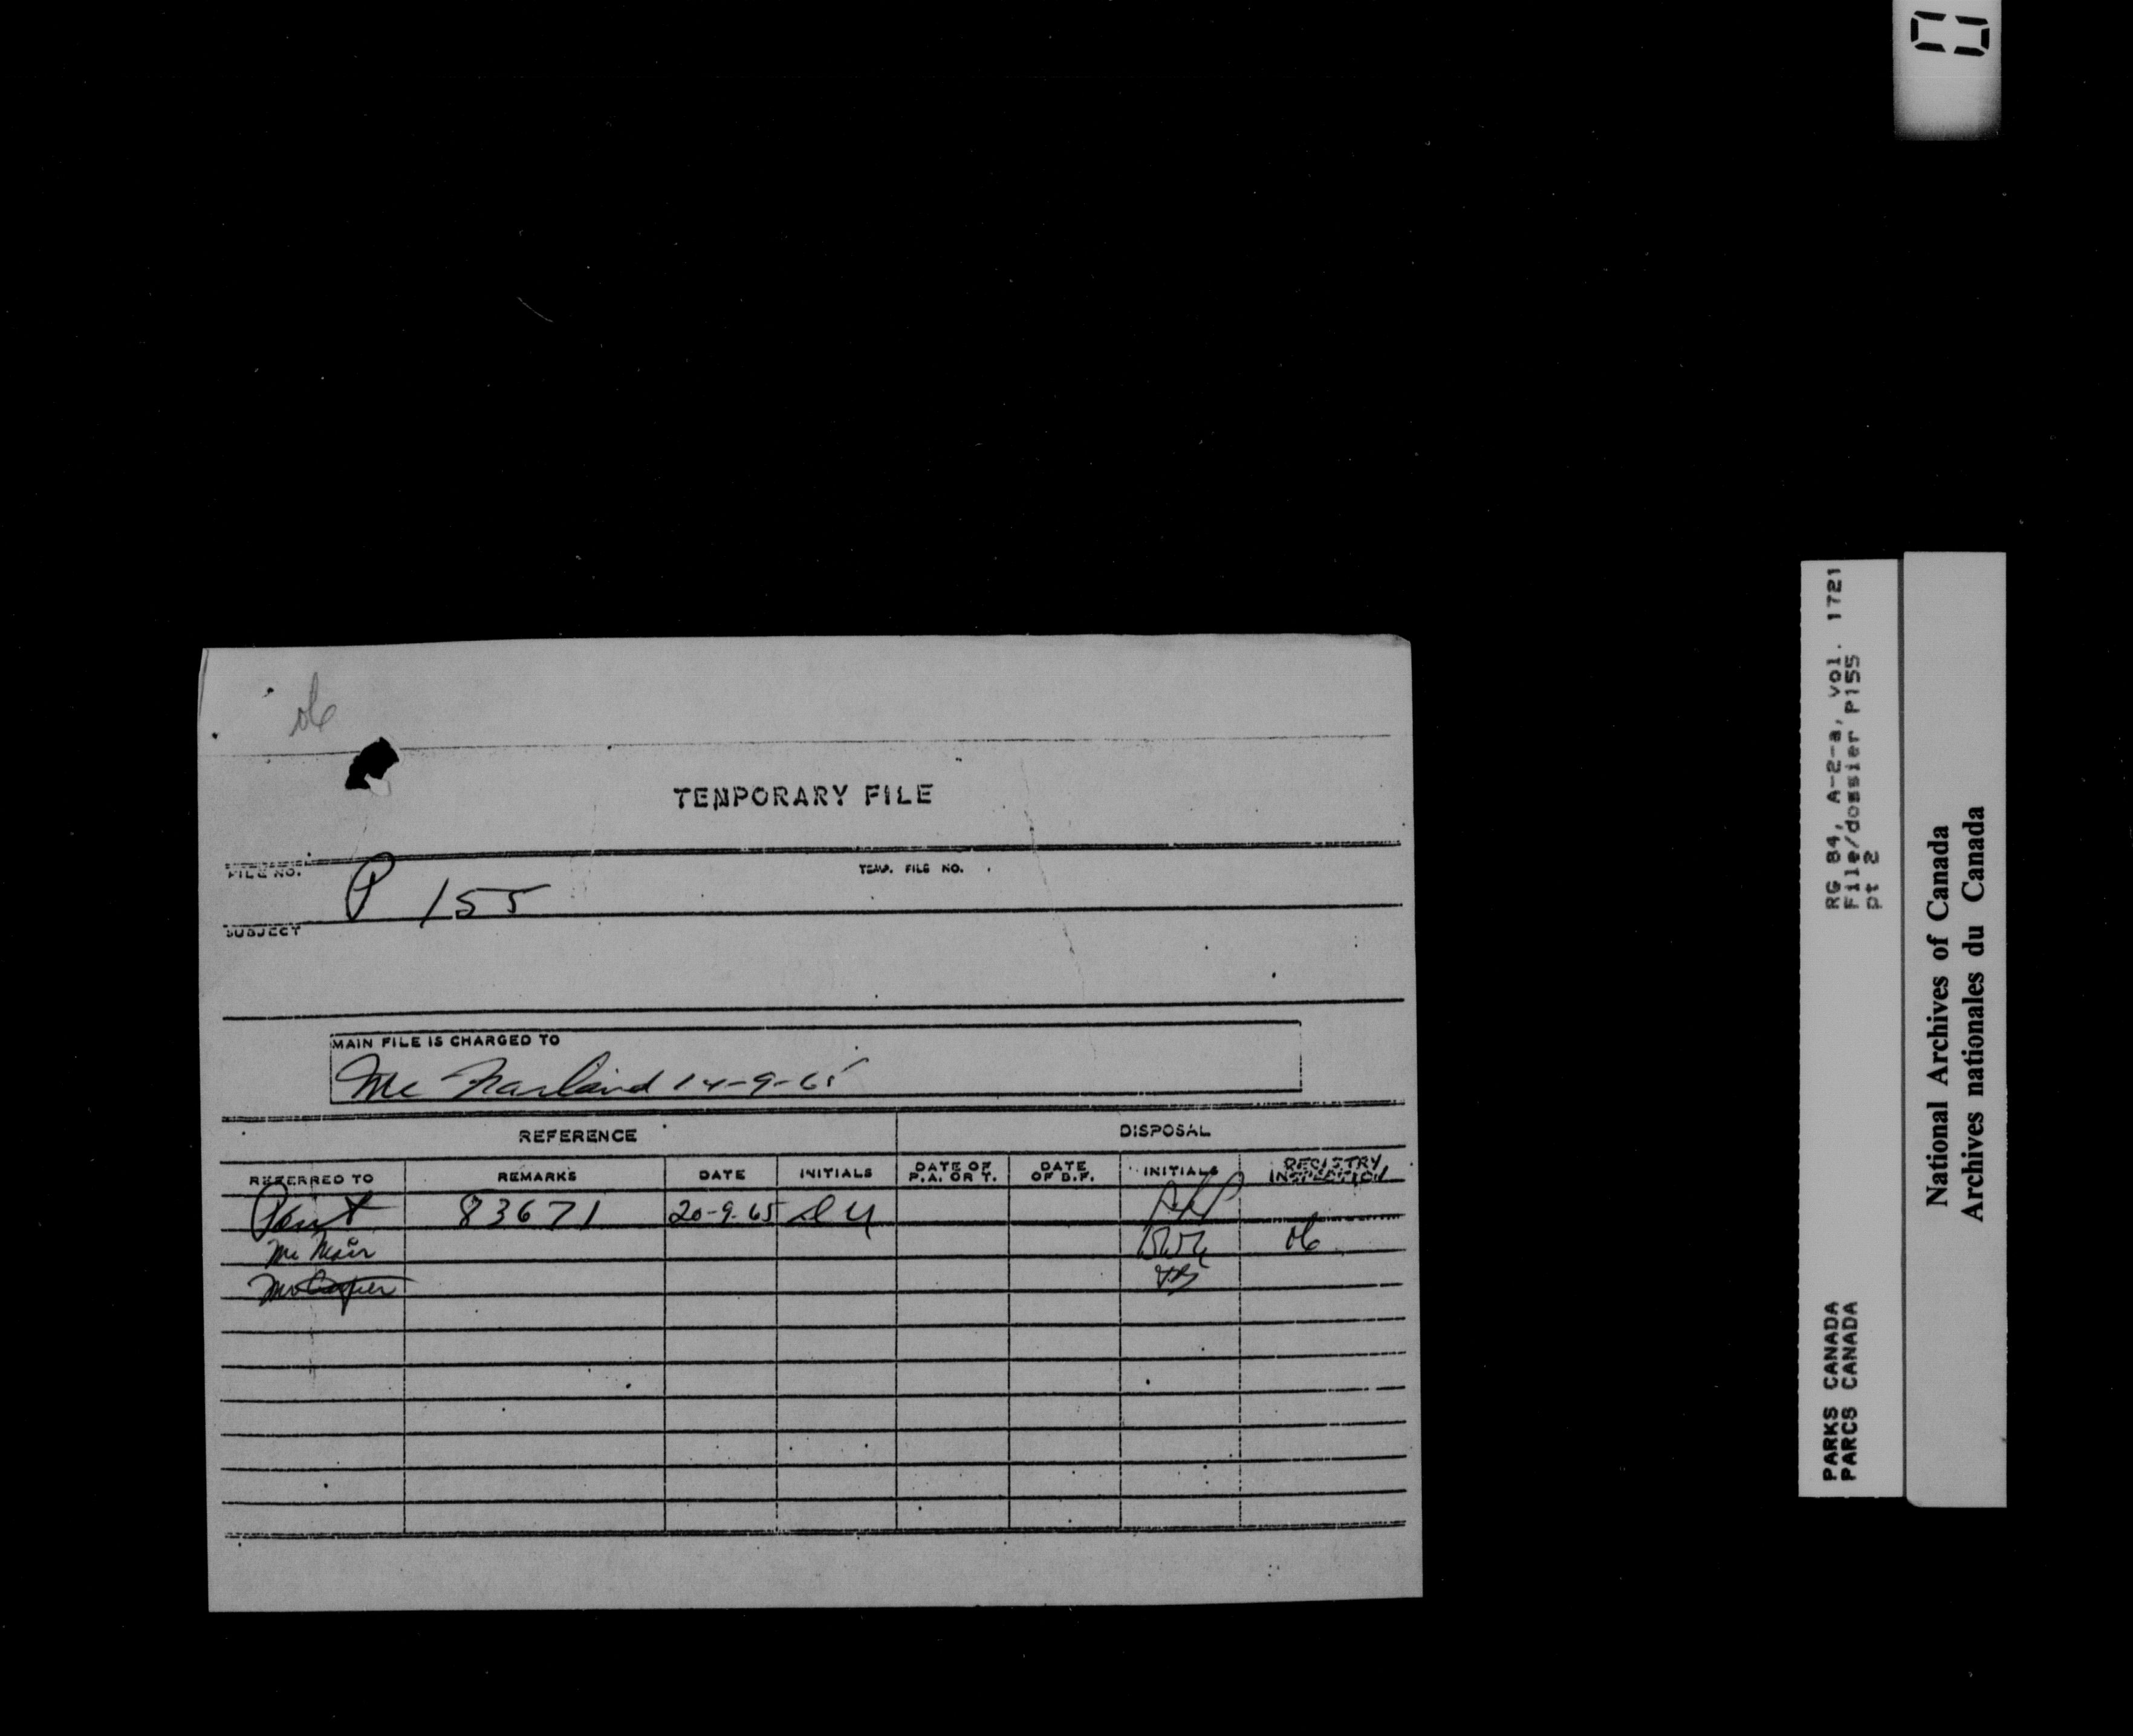 TEMPORARY FILE
FILE NO. P 155
TEMP. FILE NO.
SUBJECT
MAIN FILE IS CHARGED TO
Mc Farland 14-9-65
REFERENCE DISPOSAL
REFERRED TO REMARKS DATE INITIALS DATE OF P.A. OR T. DATE OF B.F. INITIALS REGISTRY INSPECTION
83671 20-9-65
RG 84, A-2-a, vol. 1721
File/dossier P155
pt 2
PARKS CANADA
PARCS CANADA
National Archives of Canada
Archives nationales du Canada